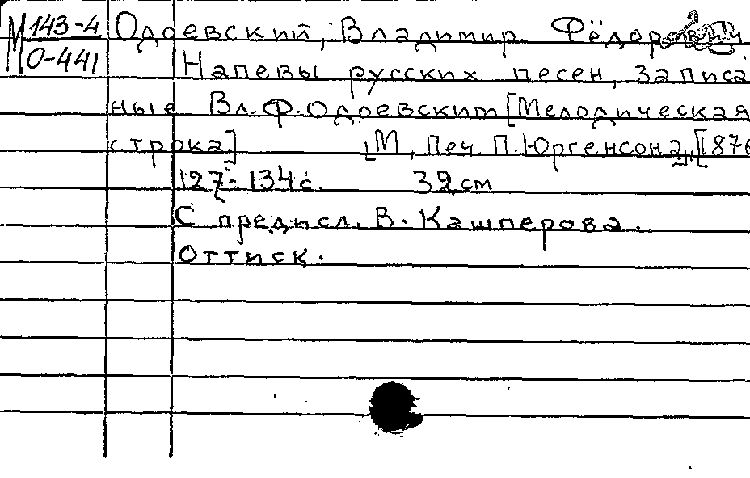 М 143-4
О-441
Одоевский, Владимир Фёдорович
Напевы русских песен, записа
ные Вл.Ф.Одоевским [Мелодическая
строка] [М., Печ. П.Юргенсона], [1876
127-134с. 39см
С предисл. В. Кашперова.
Оттиск.